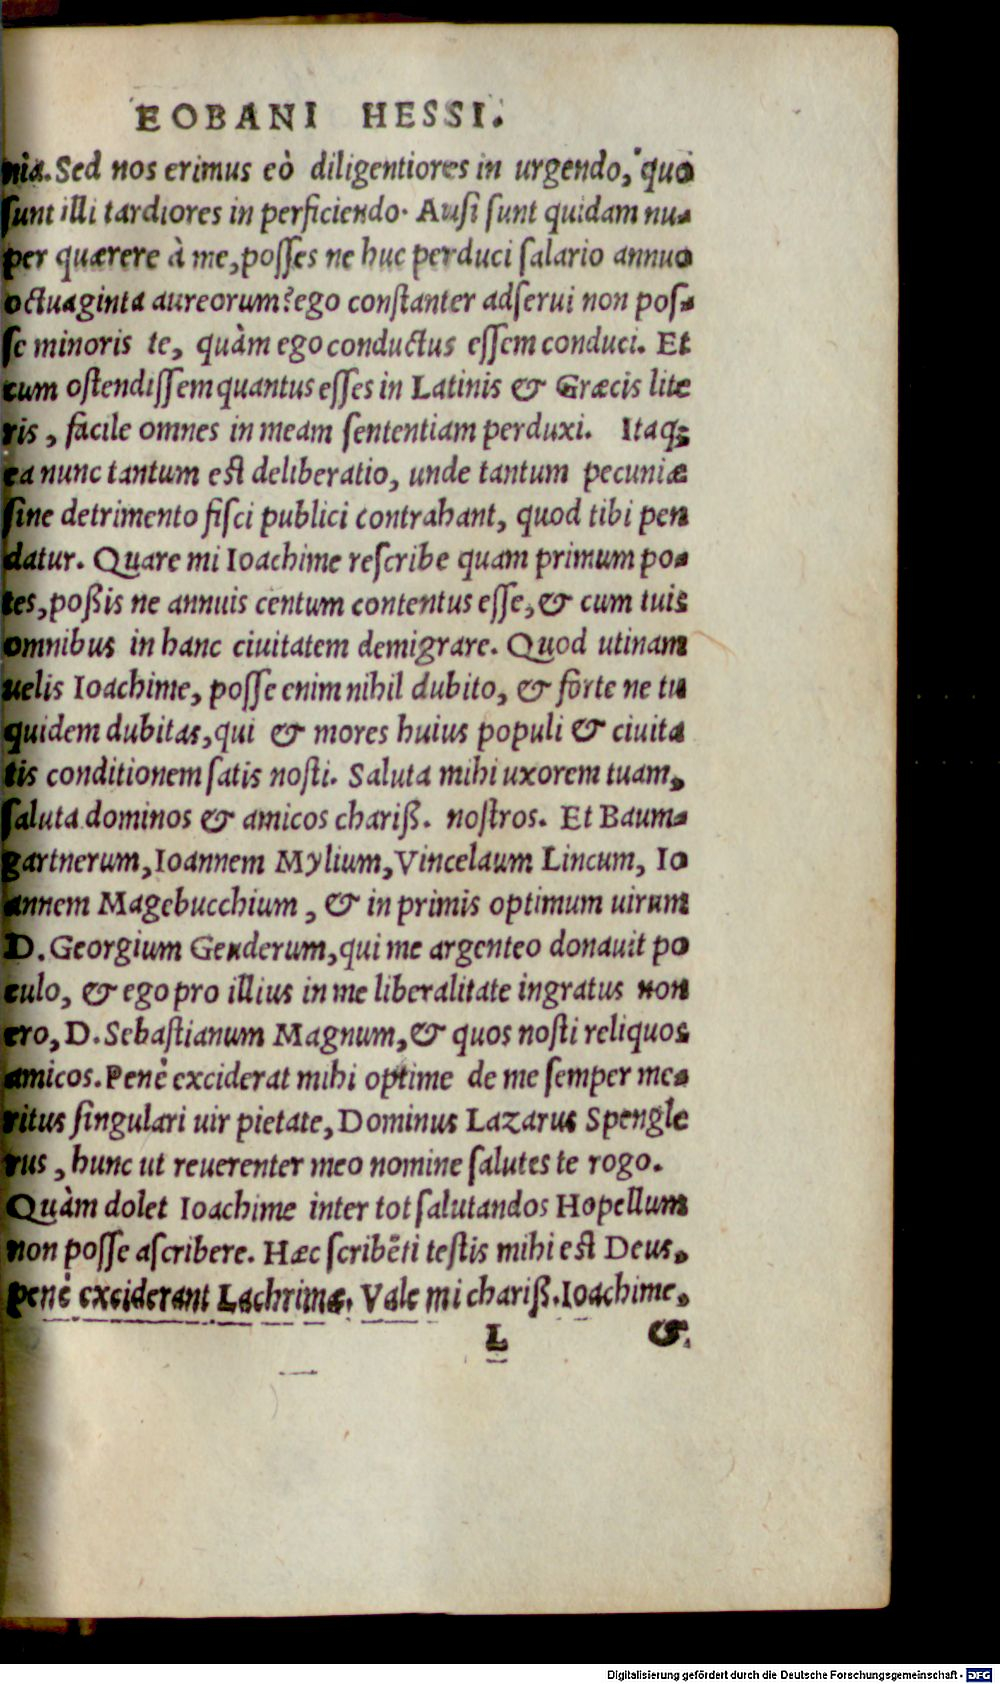 EOBANI HESSI.
nia. Sed nos erimus eò diligentiores in urgendo, quo
ſunt illi tardiores in perficiendo. Auſi ſunt quidam nu-
per quærere à me, poſſes ne huc perduci ſalario annuo
octuaginta aureorum? ego conſtanter adſerui non poſ-
ſe minoris te, quàm ego conductus eſſem conduci. Et
cum oſtendiſſem quantus eſſes in Latinis & Græcis lite
ris, facile omnes in meam ſententiam perduxi. Itaq;
ea nunc tantum eſt deliberatio, unde tantum pecuniæ
ſine detrimento fiſci publici contrahant, quod tibi pen
datur. Quare mi Ioachime reſcribe quam primum po-
tes, poßis ne annuis centum contentus eſſe, & cum tuis
omnibus in hanc ciuitatem demigrare. Quod utinam
uelis Ioachime, poſſe enim nihil dubito, & forte ne tu
quidem dubitas, qui & mores huius populi & ciuita
tis conditionem ſatis noſti. Saluta mihi uxorem tuam,
ſaluta dominos & amicos chariß. noſtros. Et Baum-
gartnerum, Ioannem Mylium, Vincelaum Lincum, Io
annem Magebucchium, & in primis optimum uirum
D. Georgium Genderum, qui me argenteo donauit po
culo, & ego pro illius in me liberalitate ingratus non
ero, D. Sebaſtianum Magnum, & quos noſti reliquos
amicos. Penè exciderat mihi optime de me ſemper me-
ritus ſingulari uir pietate, Dominus Lazarus Spengle
rus, hunc ut reuerenter meo nomine ſalutes te rogo.
Quàm dolet Ioachime inter tot ſalutandos Hopellum
non poſſe aſcribere. Hæc ſcribẽti teſtis mihi eſt Deus,
penè exciderant Lachrimæ. Vale mi chariß. Ioachime,
L &
Digitalisierung gefördert durch die Deutsche Forschungsgemeinschaft - DFG